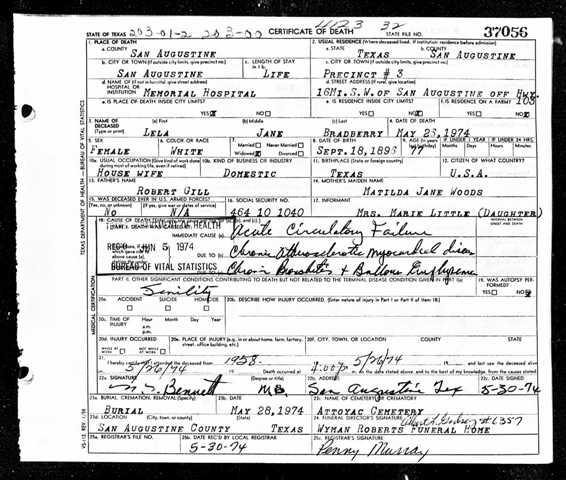 4123 32
STATE OF TEXAS 203-01-2 203-00 CERTIFICATE OF DEATH STATE FILE NO. 37056
1. PLACE OF DEATH 2. USUAL RESIDENCE (Where deceased lived. If institution: residence before admission)
a. COUNTY SAN AUGUSTINE a. STATE TEXAS b. COUNTY SAN AUGUSTINE
b. CITY OR TOWN (If outside city limits, give precinct no.) c. LENGTH OF STAY in 1 b. c. CITY OR TOWN (If outside city limits, give precinct no.)
SAN AUGUSTINE LIFE PRECINCT # 3
d. NAME OF (If not in hospital, give street address) HOSPITAL OR INSTITUTION MEMORIAL HOSPITAL d. STREET ADDRESS (If rural, give location) 16MI.S.W.OF SAN AUGUSTINE OFF HWY. 103
e. IS PLACE OF DEATH INSIDE CITY LIMITS? YES NO e. IS RESIDENCE INSIDE CITY LIMITS? YES NO f. IS RESIDENCE ON A FARM? YES NO
3. NAME OF DECEASED (Type or print) (a) First (b) Middle (c) Last 4. DATE OF DEATH
LELA JANE BRADBERRY MAY 26,1974
5. SEX 6. COLOR OR RACE 7. Married Never Married Widowed Divorced 8. DATE OF BIRTH 9. AGE IF UNDER 1 YEAR IF UNDER 24 HRS.
FEMALE WHITE SEPT.18,1896 77 Months Days Hours Minutes
10a. USUAL OCCUPATION (Give kind of work done during most of working life, even if retired) 10b. KIND OF BUSINESS OR INDUSTRY 11. BIRTHPLACE (State or foreign country) 12. CITIZEN OF WHAT COUNTRY?
HOUSE WIFE DOMESTIC TEXAS U.S.A.
13. FATHER'S NAME 14. MOTHER'S MAIDEN NAME
ROBERT GILL MATILDA JANE WOODS
15. WAS DECEASED EVER IN U.S. ARMED FORCES? 16. SOCIAL SECURITY NO. 17. INFORMANT
(Yes, no, or unknown) (If yes, give war or dates of service)
NO N/A 464 10 1040 MRS. MARIE LITTLE (DAUGHTER)
18. CAUSE OF DEATH INTERVAL BETWEEN ONSET AND DEATH
PART I. DEATH WAS CAUSED BY:
IMMEDIATE CAUSE (a) Acute Circulatory Failure
REC'D JUN 5 1974 DUE TO (b) Chronic Atherosclerotic Myocardial disease
BUREAU OF VITAL STATISTICS Chronic Bronchitis + Bullous Emphysema
PART II. OTHER SIGNIFICANT CONDITIONS CONTRIBUTING TO DEATH BUT NOT RELATED TO THE TERMINAL DISEASE CONDITION GIVEN IN PART I(a) 19. WAS AUTOPSY PERFORMED?
Senility YES NO
20a. ACCIDENT SUICIDE HOMICIDE 20b. DESCRIBE HOW INJURY OCCURRED. (Enter nature of injury in Part I or Part II of item 18.)
20c. TIME OF INJURY Hour Month Day Year
a.m.
p.m.
20d. INJURY OCCURRED WHILE AT WORK NOT WHILE AT WORK 20e. PLACE OF INJURY (e.g., in or about home, farm, factory, street, office building, etc.) 20f. CITY, TOWN, OR LOCATION COUNTY STATE
21. I hereby certify that I attended the deceased from 1958 to 5/26/74 19 , and last saw the deceased alive
on 5/26/74 19 . Death occurred at 4:00 p m. on the date stated above, and to the best of my knowledge, from the causes stated.
22a. SIGNATURE (Degree or title) 22b. ADDRESS 22c. DATE SIGNED
Bennett M.D. San Augustine Tex 5-30-74
23a. BURIAL, CREMATION, REMOVAL (Specify) 23b. DATE 23c. NAME OF CEMETERY OR CREMATORY
BURIAL MAY 28,1974 ATTOYAC CEMETERY
23d. LOCATION (City, town, or county) (State) 24. FUNERAL DIRECTOR'S SIGNATURE #6357
SAN AUGUSTINE COUNTY TEXAS WYMAN ROBERTS FUNERAL HOME
25a. REGISTRAR'S FILE NO. 25b. DATE REC'D BY LOCAL REGISTRAR 25c. REGISTRAR'S SIGNATURE
5-30-74 Penny Murray
TEXAS DEPARTMENT OF HEALTH — BUREAU OF VITAL STATISTICS
MEDICAL CERTIFICATION